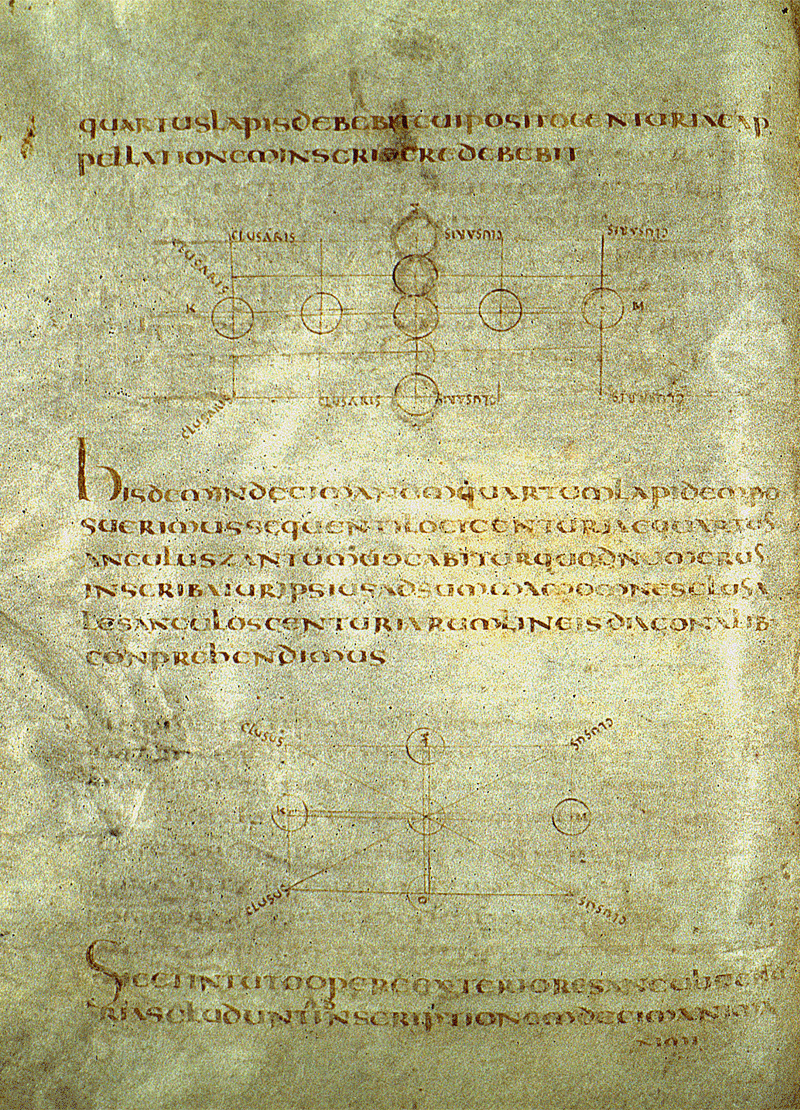 QUARTUSLAPISDEBEBITCUIPOSITOCENTURIAEAP
PELLATIONEMINSCRIBEREDEBEBIT
CLUSARIS CLUSARIS CLUSARIS
CLUSARIS
K M
CLUSARIS CLUSARIS CLUSARIS CLUSARIS
HISDEMINDECIMANUMQUARTUMLAPIDEMPO
SUERIMUSSEQUENTILOCICENTURIAEQUARTUS
ANCULUSTANTUMUOCABITURQUODNUMERUS
INSCRIBATURIPSIUSADSUMMAMOMNESCLUSA
LESANCULOSCENTURIARUMLINEISDIACONALIB
CONPREHENDIMUS
CLUSUS CLUSUS
K M
CLUSUS CLUSUS
SEDINTUTOOPEREEXTERIORESANCULI
RIASCLUDUNTINSCRIPTIONEMDECIMANI